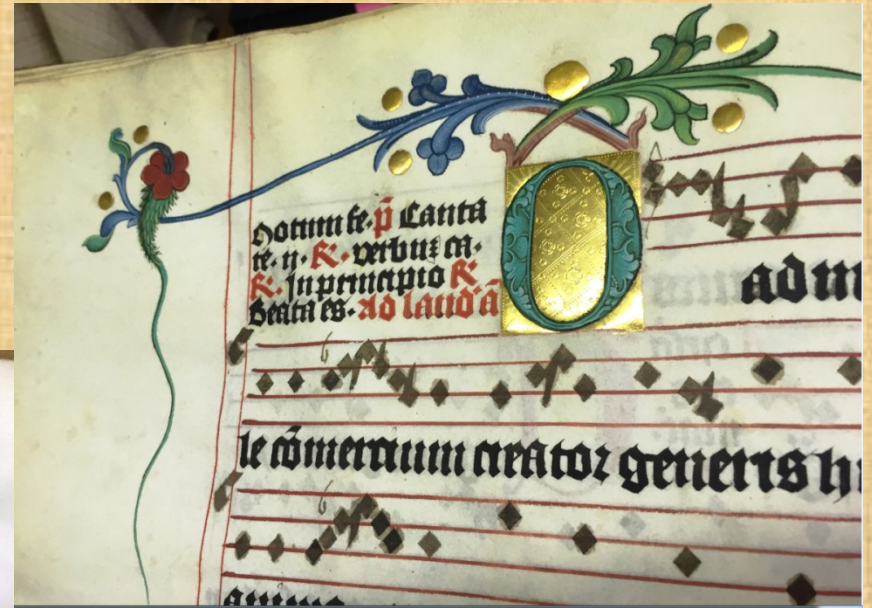 Notum fe. p̄ Canta
te. ij. R. verbuz ca.
R. In principio R.
Beata es. Ad laud' ā
O adm
le cōmertium creator generis h